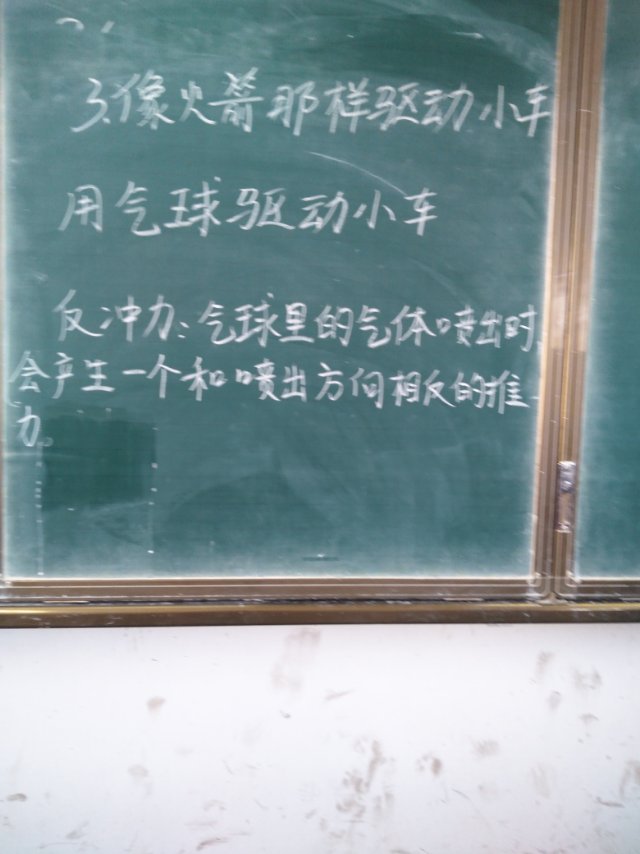 3.像火箭那样驱动小车
用气球驱动小车
反冲力:气球里的气体喷出时,
会产生一个和喷出方向相反的推
力。